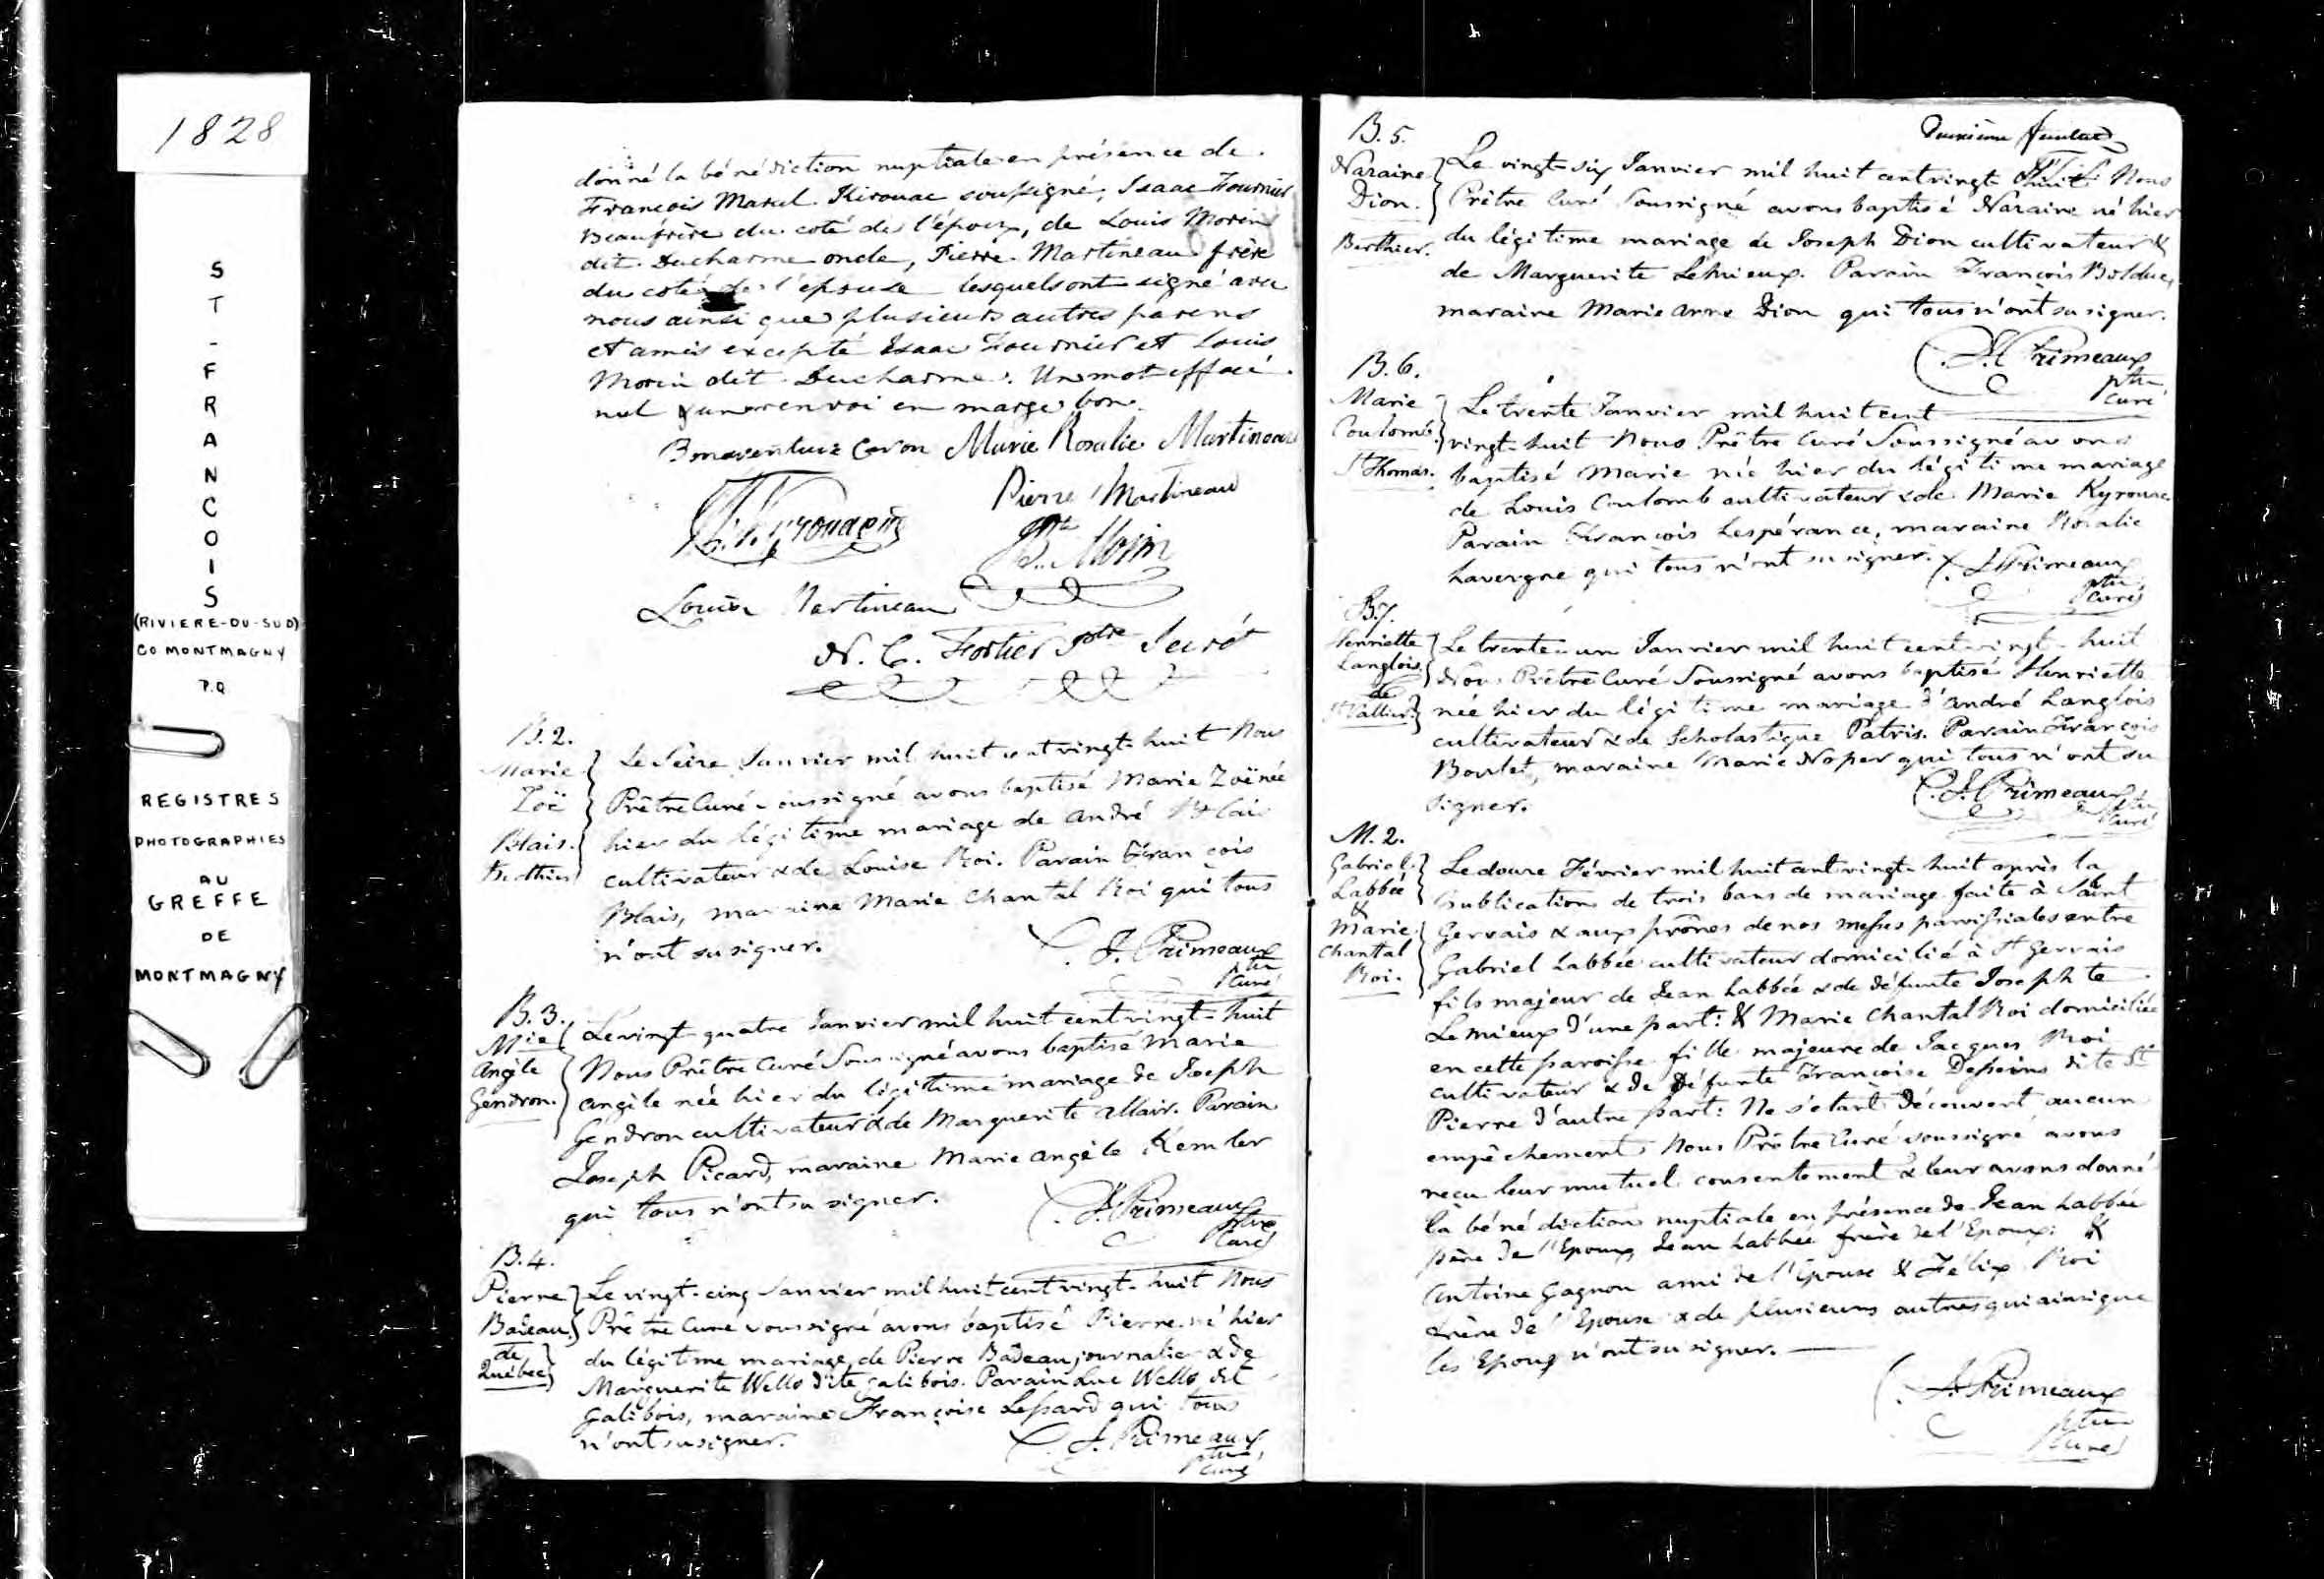 1828
S
T
-
F
R
A
N
C
O
I
S
(RIVIERE-DU-SUD)
CO MONTMAGNY
P.Q
REGISTRES
PHOTOGRAPHIES
AU
GREFFE
DE
MONTMAGNY
donné la bénédiction nuptiale en présence de
François Marcel Kirouac soussigné, Isaac Fournier
Beaufrère du coté de l'époux, de Louis Morin
dit Ducharme oncle, Pierre Martineau frère
du coté de l'épouse lesquels ont signé avec
nous ainsi que plusieurs autres parens
et amis éxcepté Isaac Fournier et Louis
Morin dit Ducharme. Un mot effacé
nul & un renvoi en marge bon.
Bonaventure Caron Marie Rosalie Martineau
Pierre Martineau
Morin
Louis Martineau
N. C. Fortier Ptre
B. 2.
Marie
Zoë
Blais.
Berthier
Le Seize Janvier mil huit cent vingt-huit Nous
Prêtre Curé soussigné avons baptisé Marie Zoë née
hier du légitime mariage de André Blais
cultivateur & de Louise Roi. Parain François
Blais, maraine Marie Chantal Roi qui tous
n'ont su signer.
J. Primeaux
ptre
Curé
B. 3.
Mie
Angèle
Gendron.
Le vingt-quatre Janvier mil huit cent vingt-huit
Nous Prêtre Curé Soussigné avons baptisé Marie
Angèle née hier du légitime mariage de Joseph
Gendron cultivateur & de Marguerite Allair. Parain
Joseph Picard, maraine Marie Angèle Kemler
qui tous n'ont su signer.
J. Primeaux
ptre
Curé
B. 4.
Pierre
Badeau
de
Québec
Le vingt-cinq Janvier mil huit cent vingt-huit Nous
Prêtre Curé soussigné avons baptisé Pierre né hier
du légitime mariage de Pierre Badeau journalier & de
Marguerite Wells dite Galibois. Parain Luc Wells dit
Galibois, maraine Françoise Lessard qui tous
n'ont su signer.
J. Primeaux
ptre
Curé
Deuxième feuillet
B. 5.
Naraine
Dion.
Berthier.
Le vingt-six Janvier mil huit cent vingt-huit Nous
Prêtre Curé Soussigné avons baptisé Naraine né hier
du légitime mariage de Joseph Dion cultivateur &
de Marguerite Lemieux. Parain François Bolduc,
maraine Marie Anne Dion qui tous n'ont su signer.
J. Primeaux
ptre
Curé
B. 6.
Marie
Coulomb.
St Thomas.
Le trente Janvier mil huit cent
vingt-huit Nous Prêtre Curé Soussigné avons
baptisé Marie née hier du légitime mariage
de Louis Coulomb cultivateur & de Marie Kyrouac
Parain François Lespérance, maraine Rosalie
Lavergne qui tous n'ont su signer. J. Primeaux
ptre
Curé
B. 7.
Henriette
Langlois
de
St Vallier.
Le trente-un Janvier mil huit cent vingt-huit
Nous Prêtre Curé Soussigné avons baptisé Henriette
née hier du légitime mariage d'André Langlois
cultivateur & de Scholastique Patris. Parain François
Boulet, maraine Marie Noper qui tous n'ont su
signer.
J. Primeaux
ptre
Curé
M. 2.
Gabriel
Labbée
&
Marie
Chantal
Roi.
Le douze Février mil huit cent vingt-huit après la
Publication de trois bans de mariage faite à Saint
Gervais & aux prônes de nos messes paroissiales entre
Gabriel Labbée cultivateur domicilié à St Gervais
fils majeur de Jean Labbée & de défunte Josephte
Lemieux d'une part: & Marie Chantal Roi domiciliée
en cette paroisse fille majeure de Jacques Roi
cultivateur & de défunte Françoise Desseins dite St
Pierre d'autre part: Ne s'étant découvert aucun
empêchement, Nous Prêtre Curé soussigné avons
reçu leur mutuel consentement & leur avons donné
la bénédiction nuptiale en présence de Jean Labbée
père de l'Epoux Jean Labbée frère de l'Epoux: &
Antoine Gagnon ami de l'Epouse & Félix Roi
frère de l'Epouse & de plusieurs autres qui ainsi que
les Epoux n'ont su signer.
J. Primeaux
ptre
Curé